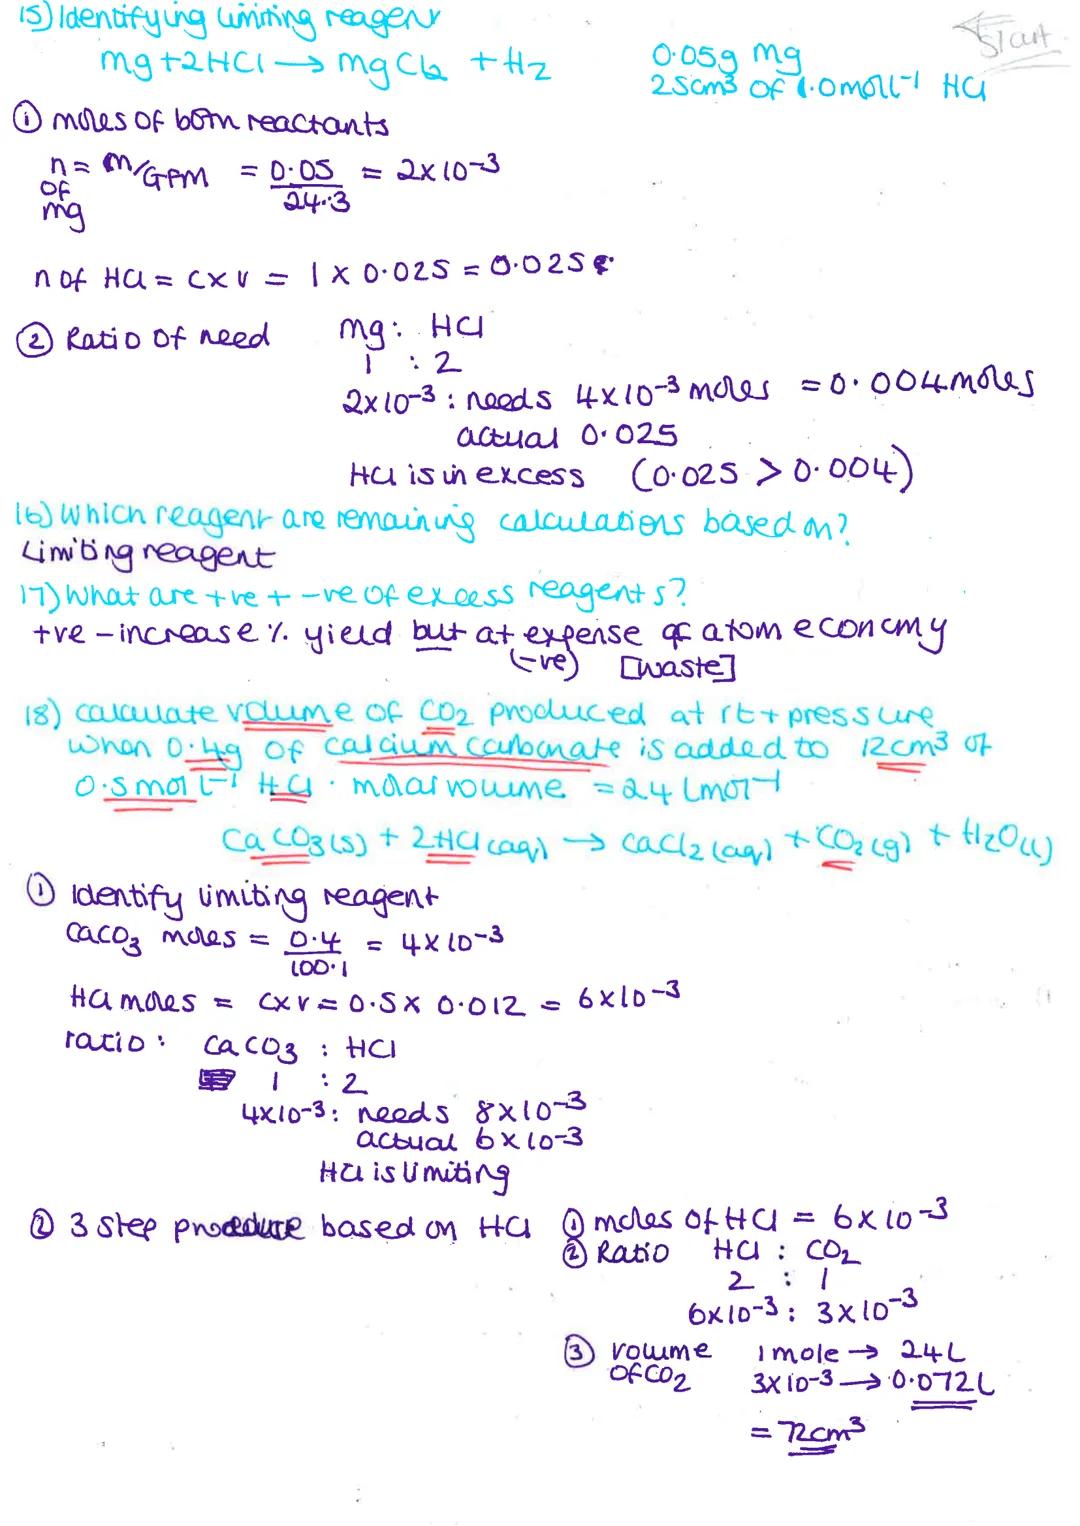 15) Identifying limiting reagent
Start
Mg + 2HCl → MgCl2 + H2
0.05g Mg
25cm³ of 1.0 mol l⁻¹ HCl
① moles of both reactants
n of Mg = m/GFM = 0.05/24.3 = 2x10⁻³
n of HCl = c x v = 1 x 0.025 = 0.025
② Ratio of need
Mg : HCl
1 : 2
2x10⁻³ : needs 4x10⁻³ moles = 0.004 moles
actual 0.025
HCl is in excess (0.025 > 0.004)
16) Which reagent are remaining calculations based on?
Limiting reagent
17) What are +ve + -ve of excess reagents?
+ve - increase % yield but at expense of atom economy
(-ve) [waste]
18) calculate volume of CO2 produced at rt + pressure
when 0.4g of calcium carbonate is added to 12cm³ of
0.5 mol l⁻¹ HCl. molar volume = 24 l mol⁻¹
CaCO3(s) + 2HCl(aq) → CaCl2(aq) + CO2(g) + H2O(l)
① Identify limiting reagent
CaCO3 moles = 0.4/100.1 = 4x10⁻³
HCl moles = c x v = 0.5 x 0.012 = 6x10⁻³
ratio : CaCO3 : HCl
1 : 2
4x10⁻³ : needs 8x10⁻³
actual 6x10⁻³
HCl is limiting
② 3 step procedure based on HCl
① moles of HCl = 6x10⁻³
② Ratio HCl : CO2
2 : 1
6x10⁻³ : 3x10⁻³
③ volume of CO2
1 mole → 24L
3x10⁻³ → 0.072L
= 72cm³